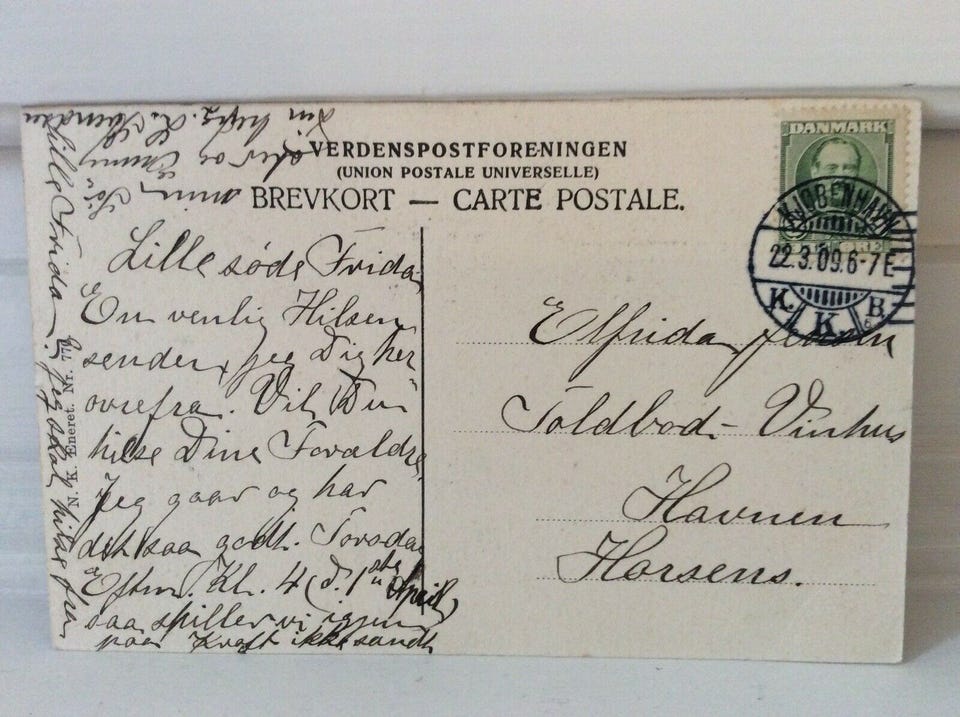 VERDENSPOSTFORENINGEN
(UNION POSTALE UNIVERSELLE)
BREVKORT — CARTE POSTALE.
DANMARK
KJØBENHAVN
22.3.09.6-7E
K. K B.
Lille søde Frida
En venlig Hilsen
sender jeg Dig her
ovrefra. Vil Du
hilse Dine Forældre,
Jeg gaar og har
det saa godt. Torsdag
Eftm. Kl. 4 (d. 1ste April)
saa spiller vi igjen
paa Kraft ikke sandt
Lille Frida. Jeg skal hilse fra
min
og
N. K. Eneret. Nr. 77
Elfrida Jensen
Toldbod- Vinhus
Havnen
Horsens.